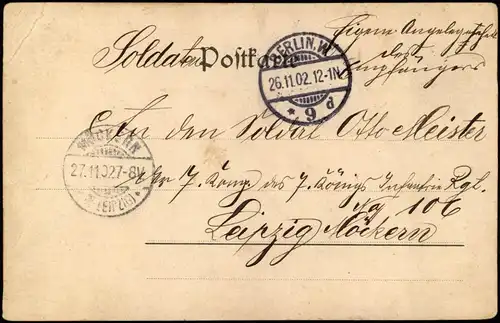 Soldaten Postkarte
Eigene Angelegenheit
des
Empfängers
BERLIN.W.
26.11.02.12-1N.
* 9 d
MÖCKERN
27.11.02 7-8V.
* (LEIPZIG)
An den Soldat Otto Meister
7. Komp. des 7. Königs Infanterie Rgt.
No 106
Leipzig Möckern